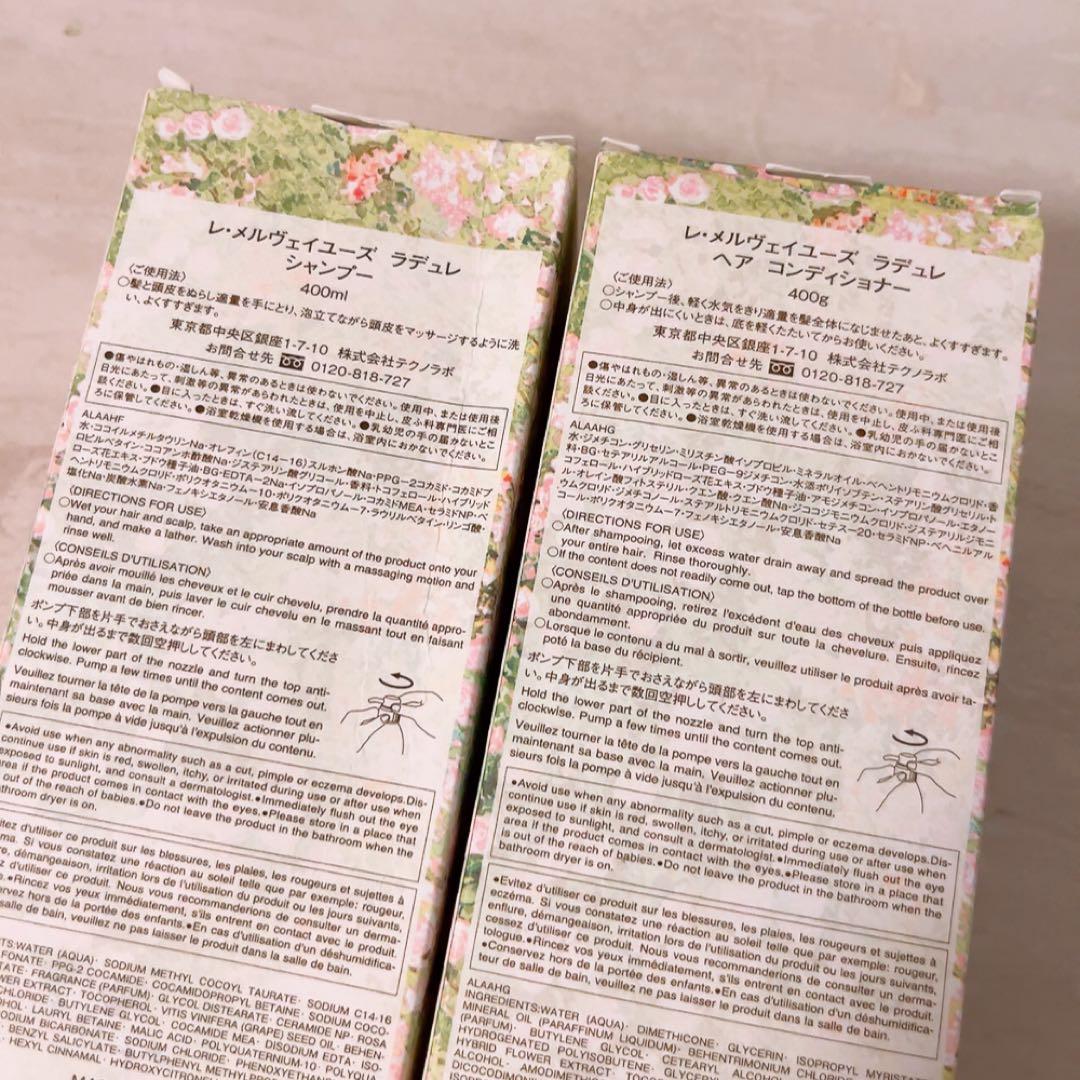 レ・メルヴェイユーズ ラデュレ
シャンプー
400ml
〈ご使用法〉
○髪と頭皮をぬらし適量を手にとり、泡立てながら頭皮をマッサージするように洗
い、よくすすぎます。
東京都中央区銀座1-7-10 株式会社テクノラボ
お問合せ先 0120-818-727
●傷やはれもの・湿しん等、異常のあるときは使わないでください。使用中、または使用後
日光にあたって、刺激等の異常があらわれたときは、使用を中止し、皮ふ科専門医にご相
談ください。●目に入ったときは、すぐ洗い流してください。●乳幼児の手の届かないとこ
ろに保管してください。●浴室乾燥機を使用する場合は、浴室内におかないでください。
ALAAHF
水・ココイルメチルタウリンNa・オレフィン(C14-16)スルホン酸Na・PPG-2コカミド・コカミドプ
ロピルベタイン・ココアンホ酢酸Na・ジステアリン酸グリコール・香料・トコフェロール・ハイブリッド
ローズ花エキス・ブドウ種子油・BG・EDTA-2Na・イソプロパノール・コカミドMEA・セラミドNP・ベ
ヘントリモニウムクロリド・ポリクオタニウム-10・ポリクオタニウム-7・ラウリルベタイン・リンゴ酸・
塩化Na・炭酸水素Na・フェノキシエタノール・安息香酸Na
〈DIRECTIONS FOR USE〉
○Wet your hair and scalp. take an appropriate amount of the product onto your
hand, and make a lather. Wash into your scalp with a massaging motion and
rinse well.
〈CONSEILS D'UTILISATION〉
○Après avoir mouillé les cheveux et le cuir chevelu, prendre la quantité appro-
priée dans la main, puis laver le cuir chevelu en le massant tout en faisant
mousser avant de bien rincer.
ポンプ下部を片手でおさえながら頭部を左にまわしてくださ
い。中身が出るまで数回空押ししてください。
Hold the lower part of the nozzle and turn the top anti-
clockwise. Pump a few times until the content comes out.
Veuillez tourner la tête de la pompe vers la gauche tout en
maintenant sa base avec la main. Veuillez actionner plu-
sieurs fois la pompe à vide jusqu'à l'expulsion du contenu.
●Avoid use when any abnormality such as a cut, pimple or eczema develops.Dis-
continue use if skin is red, swollen, itchy, or irritated during use or after use when
exposed to sunlight, and consult a dermatologist.●Immediately flush out the eye
area if the product comes in contact with the eyes.●Please store in a place that
out of the reach of babies.●Do not leave the product in the bathroom when the
bathroom dryer is on.
d'utiliser ce produit sur les blessures, les plaies, les rougeurs et sujettes à
Si vous constatez une réaction au soleil telle que par exemple: rougeur,
démangeaison, irritation lors de l'utilisation du produit ou les jours suivants,
d'utiliser ce produit. Nous vous recommanderions de consulter un derma-
●Rincez vos yeux immédiatement, s'ils entrent en contact avec le produit.
hors de la portée des enfants.●En cas d'utilisation d'un déshumidifica-
salle de bain, veuillez ne pas laisser le produit dans la salle de bain.
WATER (AQUA)· SODIUM METHYL COCOYL TAURATE· SODIUM C14-16
PPG-2 COCAMIDE· COCAMIDOPROPYL BETAINE· SODIUM COCO-
FRAGRANCE (PARFUM)· GLYCOL DISTEARATE· CERAMIDE NP· ROSA
EXTRACT· TOCOPHEROL· VITIS VINIFERA (GRAPE) SEED OIL· BEHEN-
CHLORIDE· BUTYLENE GLYCOL· COCAMIDE MEA· DISODIUM EDTA· ISO-
LAURYL BETAINE· MALIC ACID· POLYQUATERNIUM-10· POLYQUA-
BICARBONATE· SODIUM CHLORIDE· PHENOXYETHANOL
BENZYL SALICYLATE· BUTYLPHENYL
HEXYL CINNAMAL·
レ・メルヴェイユーズ ラデュレ
ヘア コンディショナー
400g
〈ご使用法〉
○シャンプー後、軽く水気をきり適量を髪全体になじませたあと、よくすすぎます。
○中身が出にくいときは、底を軽くたたいてからお使いください。
東京都中央区銀座1-7-10 株式会社テクノラボ
お問合せ先 0120-818-727
●傷やはれもの・湿しん等、異常のあるときは使わないでください。使用中、または使用後
日光にあたって、刺激等の異常があらわれたときは、使用を中止し、皮ふ科専門医にご相
談ください。●目に入ったときは、すぐ洗い流してください。●乳幼児の手の届かないとこ
ろに保管してください。●浴室乾燥機を使用する場合は、浴室内におかないでください。
ALAAHG
水・ジメチコン・グリセリン・ミリスチン酸イソプロピル・ミネラルオイル・ベヘントリモニウムクロリド・香
料・BG・セテアリルアルコール・PEG-9ジメチコン・水添ポリイソブテン・ステアリン酸グリセリル・ト
コフェロール・ハイブリッドローズ花エキス・ブドウ種子油・アモジメチコン・イソプロパノール・エタノー
ル・オレイン酸フィトステリル・クエン酸・クエン酸Na・ジココジモニウムクロリド・ジステアリルジモニ
ウムクロリド・ジメチコノール・ステアルトリモニウムクロリド・セテス-20・セラミドNP・ベヘニルアル
コール・ポリクオタニウム-7・フェノキシエタノール・安息香酸Na
〈DIRECTIONS FOR USE〉
○After shampooing, let excess water drain away and spread the product over
your entire hair. Rinse thoroughly.
○If the content does not readily come out, tap the bottom of the bottle before use.
〈CONSEILS D'UTILISATION〉
○Après le shampooing, retirez l'excédent d'eau des cheveux puis appliquez
une quantité appropriée du produit sur toute la chevelure. Ensuite, rincez
abondamment.
○Lorsque le contenu a du mal à sortir, veuillez utiliser le produit après avoir ta-
poté la base du récipient.
ポンプ下部を片手でおさえながら頭部を左にまわしてくださ
い。中身が出るまで数回空押ししてください。
Hold the lower part of the nozzle and turn the top anti-
clockwise. Pump a few times until the content comes out.
Veuillez tourner la tête de la pompe vers la gauche tout en
maintenant sa base avec la main. Veuillez actionner plu-
sieurs fois la pompe à vide jusqu'à l'expulsion du contenu.
●Avoid use when any abnormality such as a cut, pimple or eczema develops.Dis-
continue use if skin is red, swollen, itchy, or irritated during use or after use when
exposed to sunlight, and consult a dermatologist.●Immediately flush out the eye
area if the product comes in contact with the eyes.●Please store in a place that
is out of the reach of babies.●Do not leave the product in the bathroom when the
bathroom dryer is on.
●Evitez d'utiliser ce produit sur les blessures, les plaies, les rougeurs et sujettes à
eczéma. Si vous constatez une réaction au soleil telle que par exemple: rougeur,
enflure, démangeaison, irritation lors de l'utilisation du produit ou les jours suivants,
cessez d'utiliser ce produit. Nous vous recommanderions de consulter un derma-
tologue.●Rincez vos yeux immédiatement, s'ils entrent en contact avec le produit.
●Conservez hors de la portée des enfants.●En cas d'utilisation d'un déshumidifica-
teur de salle de bain, veuillez ne pas laisser le produit dans la salle de bain.
ALAAHG
INGREDIENTS:WATER (AQUA)· DIMETHICONE· GLYCERIN· ISOPROPYL
MINERAL OIL (PARAFFINUM LIQUIDUM)· BEHENTRIMONIUM
(PARFUM)· BUTYLENE GLYCOL· CETEARYL ALCOHOL
HYDROGENATED POLYISOBUTENE·
HYBRID FLOWER EXTRACT·
ALCOHOL·